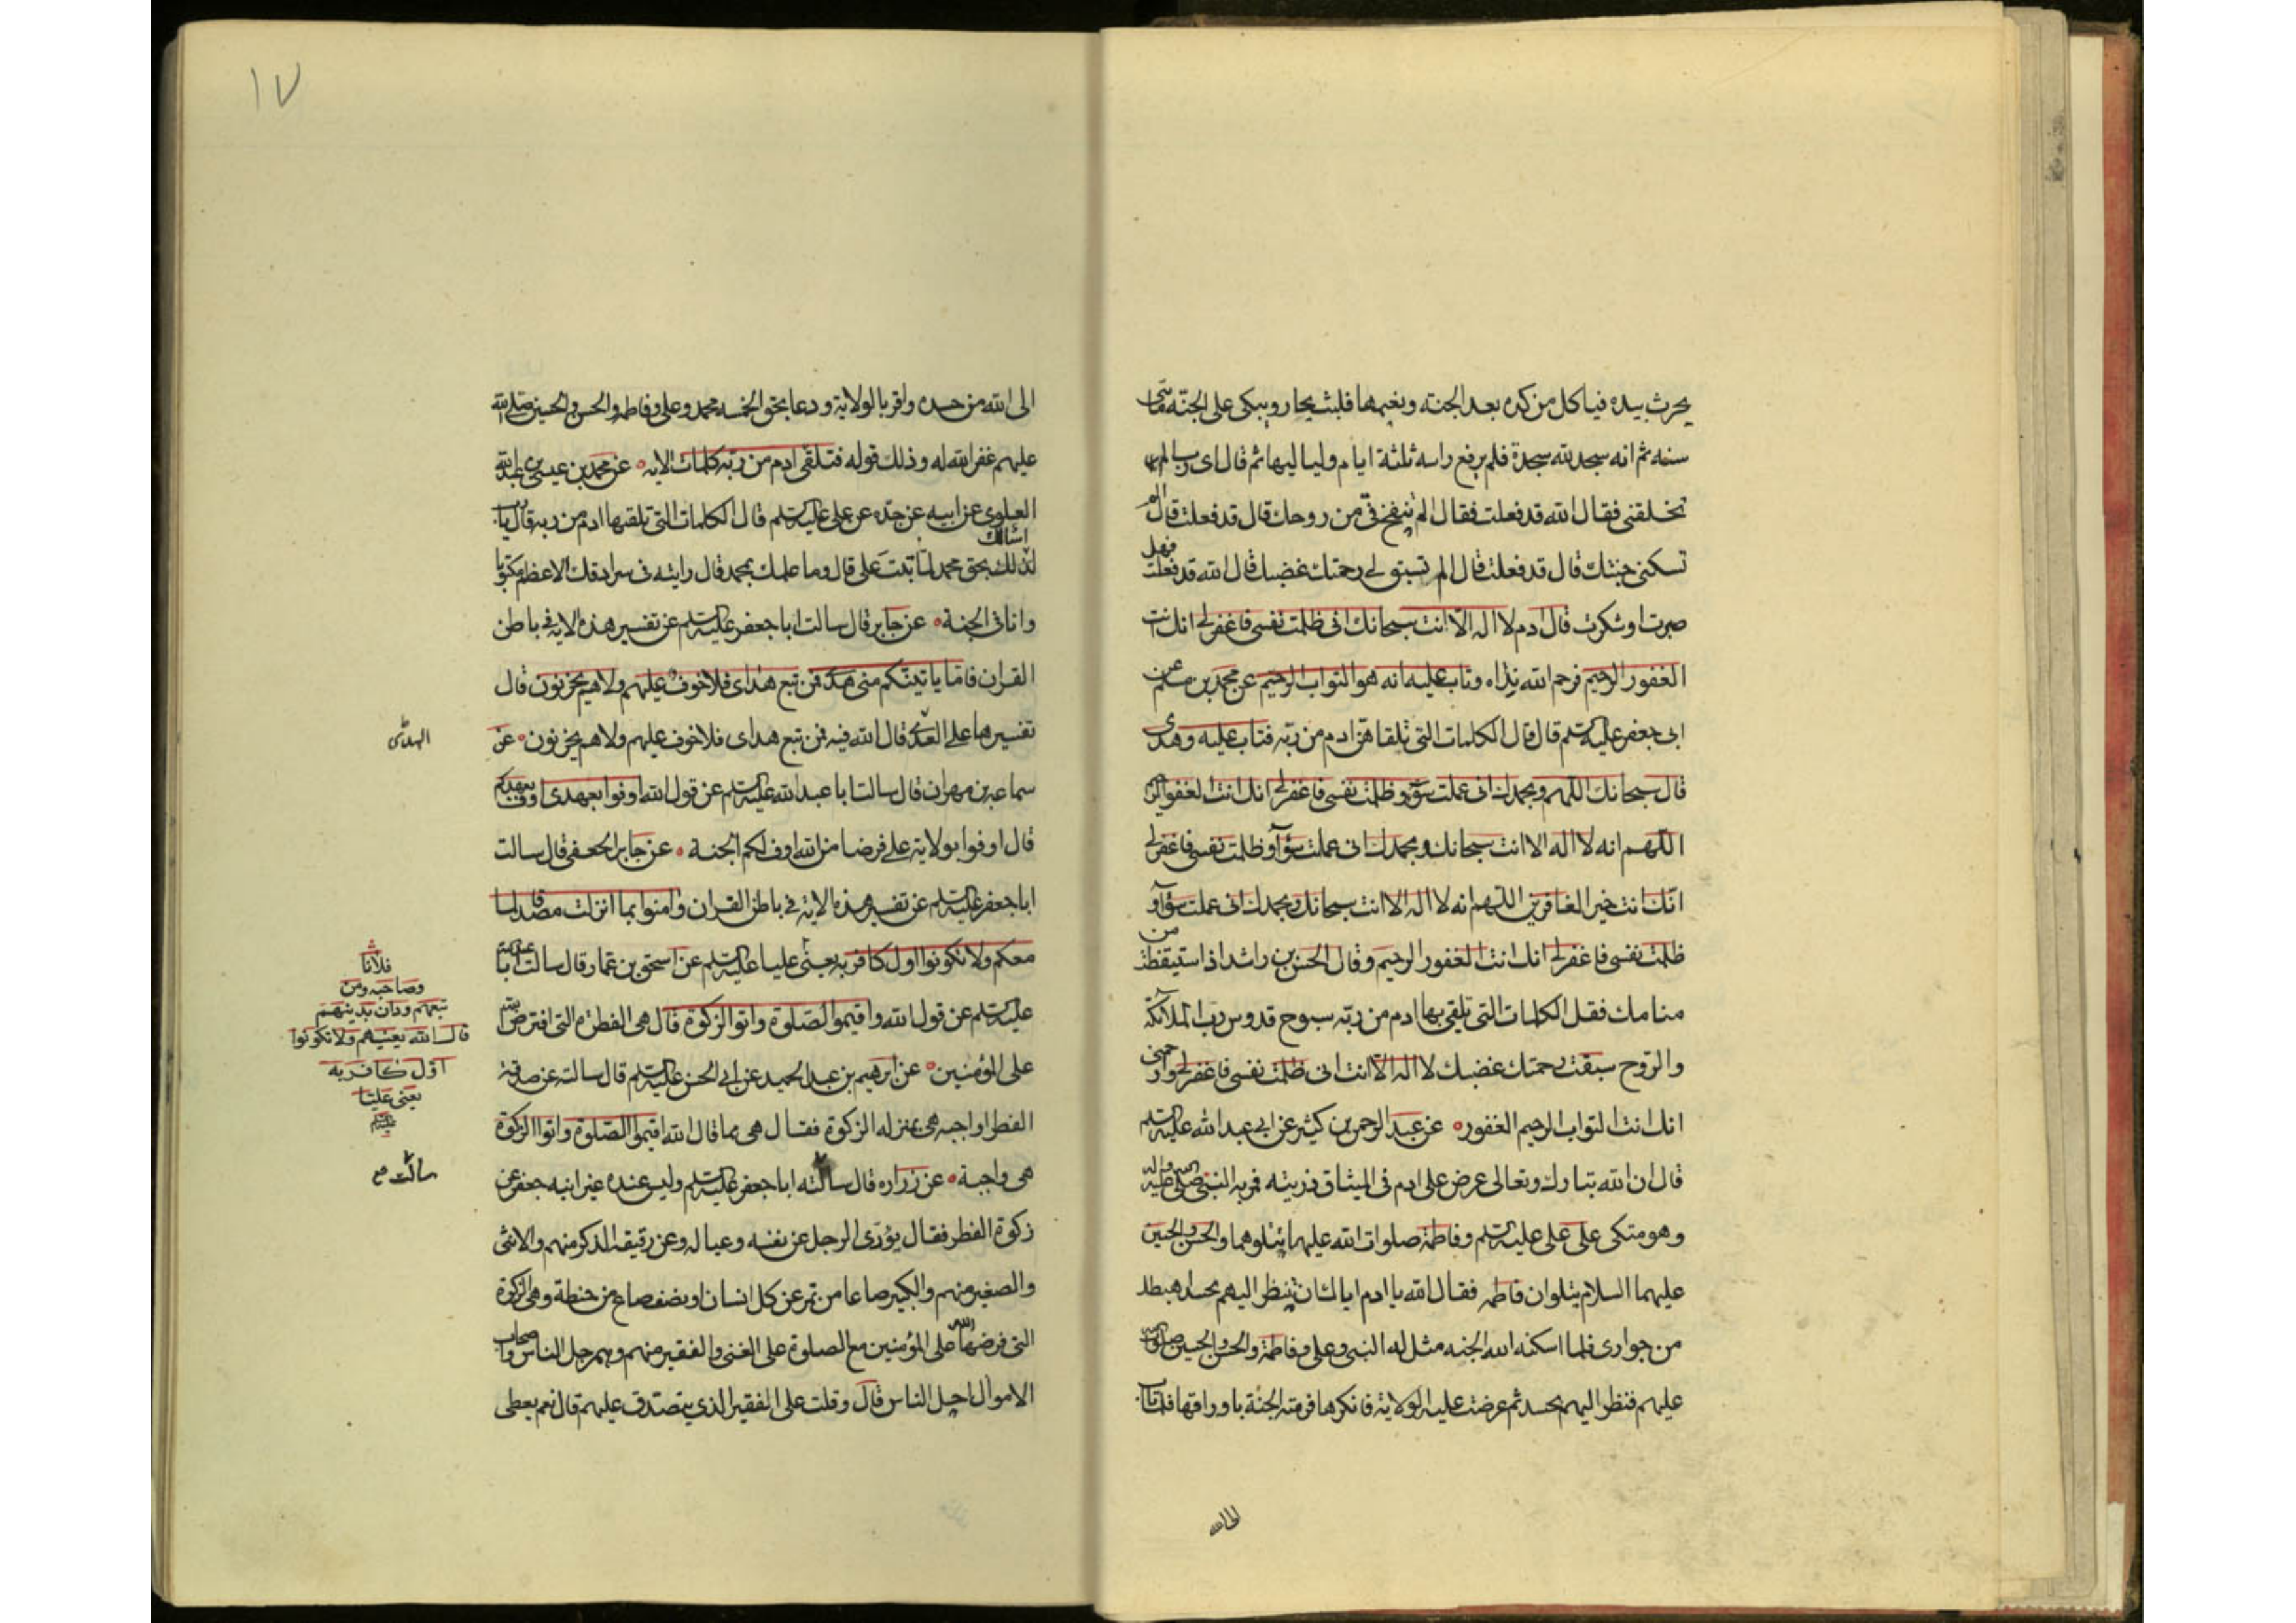 يحرث بيده فياكل من كده بعد الجنة ونعيمها فلبث يجار ويبكي على الجنة مأتى
سنه ثم انه سجد لله سجدة فلم يرفع راسه ثلثة ايام ولياليها ثم قال اى رب الم
تخلقنى فقال الله قد فعلت فقال الم تنفخ فى من روحك قال قد فعلت قال الم
تسكنى جنتك قال قد فعلت قال الم تسبق لى رحمتك غضبك قال الله قد فعلت فهل
صبرت او شكرت قال ادم لا اله الا انت سبحانك انى ظلمت نفسى فاغفر لى انك انت
الغفور الرحيم فرحم الله نداه وتاب عليه انه هو التواب الرحيم عن محمد بن مسلم عن
ابى جعفر عليه السلم قال قال الكلمات التى تلقاهن ادم من ربه فتاب عليه وهدى
قال سبحانك اللهم وبحمدك انى عملت سوء وظلمت نفسى فاغفر لى انك انت الغفور الر
اللهم انه لا اله الا انت سبحانك وبحمدك انى عملت سوآ وظلمت نفسى فاغفر لى
انك انت خير الغافرين اللهم انه لا اله الا انت سبحانك وبحمدك انى عملت سوآ و
ظلمت نفسى فاغفر لى انك انت الغفور الرحيم وقال الحسن بن راشد اذا استيقظت من
منامك فقل الكلمات التى تلقى بها ادم من ربه سبوح قدوس رب الملائكة
والروح سبقت رحمتك غضبك لا اله الا انت انى ظلمت نفسى فاغفر لى وارحمنى
انك انت التواب الرحيم الغفور عن عبد الرحمن بن كثير عن ابى عبد الله عليه السلم
قال ان الله تبارك وتعالى عرض على ادم فى الميثاق ذريته فمر به النبى صلى الله عليه واله
وهو متكى على على عليه السلم وفاطمة صلوات الله عليهما تتلوهما والحسن والحسين
عليهما السلام يتلوان فاطمه فقال الله يا ادم اياك ان تنظر اليهم بحسد اهبطك
من جوارى فلما اسكنه الله الجنه مثل له النبى وعلى وفاطمة والحسن والحسين صلوات الله
عليهم فنظر اليهم بحسد ثم عرضت عليه الولاية فانكرها فرمته الجنة باوراقها فلما تاب
الى الله
١٧
الى الله من حسده واقر بالولاية ودعا بحق الخمسه محمد وعلى وفاطمه والحسن والحسين صلى الله
عليهم غفر الله له وذلك قوله فتلقى ادم من ربه كلمات الايه عن محمد بن عيسى بن عبد الله
العلوى عن ابيه عن جده عن على عليه السلم قال الكلمات التى تلقيها ادم من ربه قال يا رب
اسالك
لذلك بحق محمد لما تبت على قال وما علمك بمحمد قال رايته فى سرادقك الاعظم مكتوبا
وانا فى الجنة عن جابر قال سالت ابا جعفر عليه السلم عن تفسير هذه الاية فى باطن
القران فاما ياتينكم منى هدى فمن تبع هداى فلا خوف عليهم ولا هم يحزنون قال
تفسيرها على العدى قال الله فيه فمن تبع هداى فلا خوف عليهم ولا هم يحزنون عن
سماعه بن مهران قال سالت ابا عبد الله عليه السلم عن قول الله اوفوا بعهدى اوف بعهدكم
قال اوفوا بولاية على فرضا من الله اوف لكم الجنة عن جابر الجعفى قال سالت
ابا جعفر عليه السلم عن تفسير هذه الاية فى باطن القران وامنوا بما انزلت مصدقا لما
معكم ولا تكونوا اول كافر به يعنى عليا عليه السلم عن اسحق بن عمار قال سالت ابا عبد الله
عليه السلم عن قول الله واقيموا الصلوة واتوا الزكوة قال هى الفطرة التى افترض الله
على المؤمنين عن ابرهيم بن عبد الحميد عن ابى الحسن عليه السلم قال سالته عن صدقة
الفطر اواجبه هى بمنزله الزكوة فقال هى مما قال الله اقيموا الصلوة واتوا الزكوة
هى واجبة عن زراره قال سالته ابا جعفر عليه السلم وليس عنده غير ابنه جعفر عن
زكوة الفطر فقال يؤدى الرجل عن نفسه وعياله وعن رقيقه الذكر منهم والانثى
والصغير منهم والكبير صاعا من تمر عن كل انسان او نصف صاع من حنطة وهى الزكوة
التى فرضها الله على المؤمنين مع الصلوة على الغنى والفقير منهم وهم جل الناس واصحاب
الاموال اجل الناس قال وقلت على الفقير الذى يتصدق عليهم قال نعم يعطى
الهدى
فلانا
وصاحبه ومن
تبعهم ودان بدينهم
قال الله يعنيهم ولا تكونوا
اول كافر به
يعنى عليا
سالت